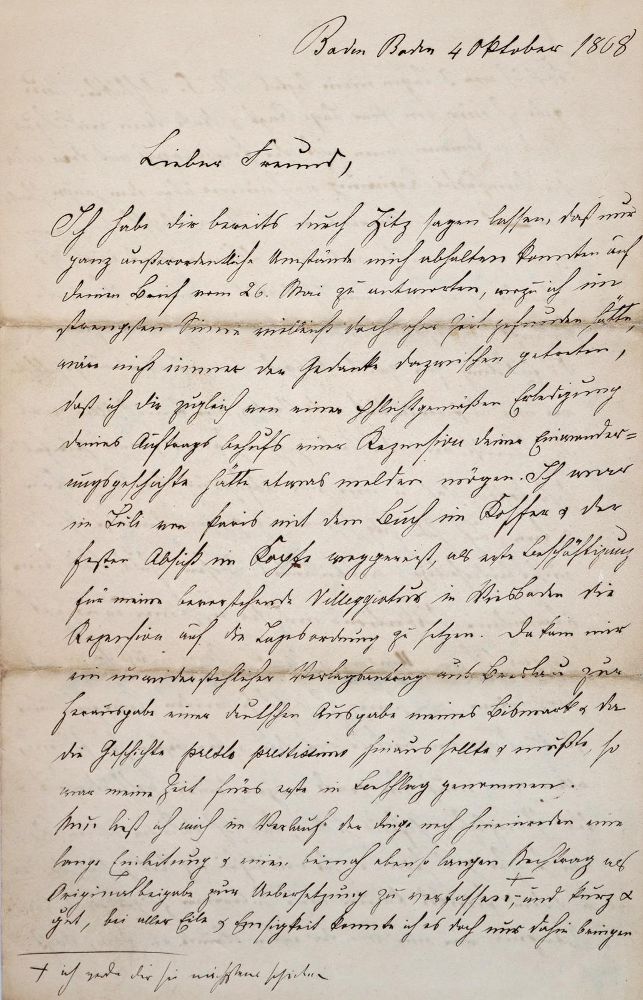 Baden Baden 4 Oktober 1868
Lieber Freund,
Ich habe dir bereits durch Hitz sagen lassen, daß nur
ganz außerordentliche Umstände mich abhalten konnten auf
deinen Brief vom 26. Mai zu antworten, wozu ich im
strengsten Sinne vielleicht doch eher Zeit gefunden hätte
wäre nicht immer der Gedanke dazwischen getreten,
daß ich dir zugleich von einer pflichtgemäßen Erledigung
deines Auftrags behufs einer Rezension deiner Einwander=
ungsgeschichte hätte etwas melden mögen. Ich war
im Juli von Paris mit dem Buch im Koffer & der
festen Absicht im Kopfe weggereist, als erste Beschäftigung
für meine bevorstehende Villeggiatur in Wiesbaden die
Rezension auf die Tagesordnung zu setzen. Da kam mir
ein unwiderstehlicher Verlagsantrag aus Breslau zur
Herausgabe einer deutschen Ausgabe meines Bismark & da
die Geschichte presto prestissimo hinaus sollte & mußte, so
war meine Zeit fürs erste in Beschlag genommen.
Nun ließ ich mich im Verlaufe der Dinge noch hineinreden eine
lange Einleitung & einen beinah ebenso langen Nachtrag als
Originalbeigabe zur Uebersetzung zu verfassen+, und kurz &
gut, bei aller Eile & Emsigkeit konnte ich es doch nur dahin bringen
+ ich werde dir sie nächstens schicken